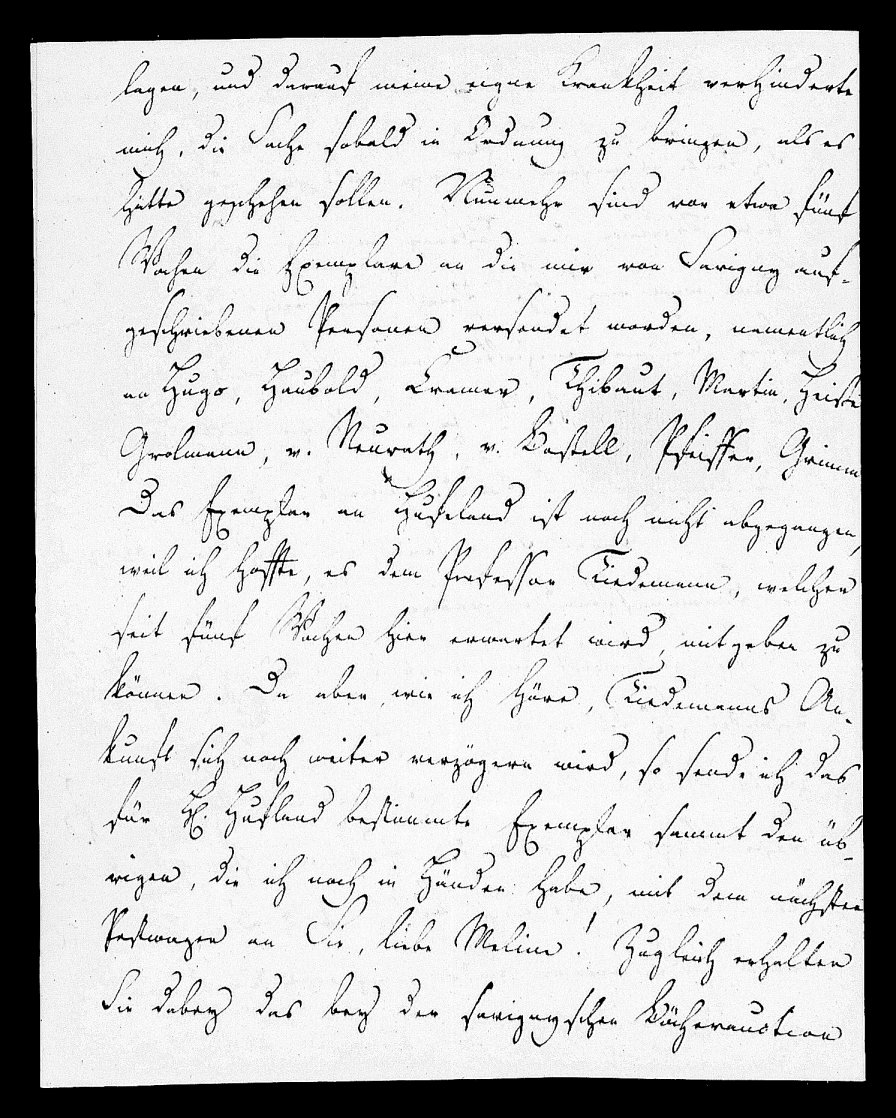 lagen, und darauf meine eigne Krankheit verhinderte
mich, die Sache sobald in Ordnung zu bringen, als es
hätte geschehen sollen. Nunmehr sind vor etwa fünf
Wochen die Exemplare an die mir von Savigny auf-
geschriebenen Personen versendet worden, namentlich
an Hugo, Haubold, Cramer, Thibaut, Martin, Heise
Grolmann, v. Neurath, v. Bostell, Pfeiffer, Grimm
Das Exemplar an Hufeland ist noch nicht abgegangen,
weil ich hoffte, es dem Professor Tiedemann, welcher
seit fünf Wochen hier erwartet wird, mitgeben zu
können. Da aber, wie ich höre, Tiedemanns An-
kunft sich noch weiter verzögern wird, so sende ich das
für H. Hufland bestimmte Exemplar sammt den üb-
rigen, die ich noch in Händen habe, mit dem nächsten
Postwagen an Sie, liebe Meline! Zugleich erhalten
Sie dabey das bey der savignyschen Bücherauction